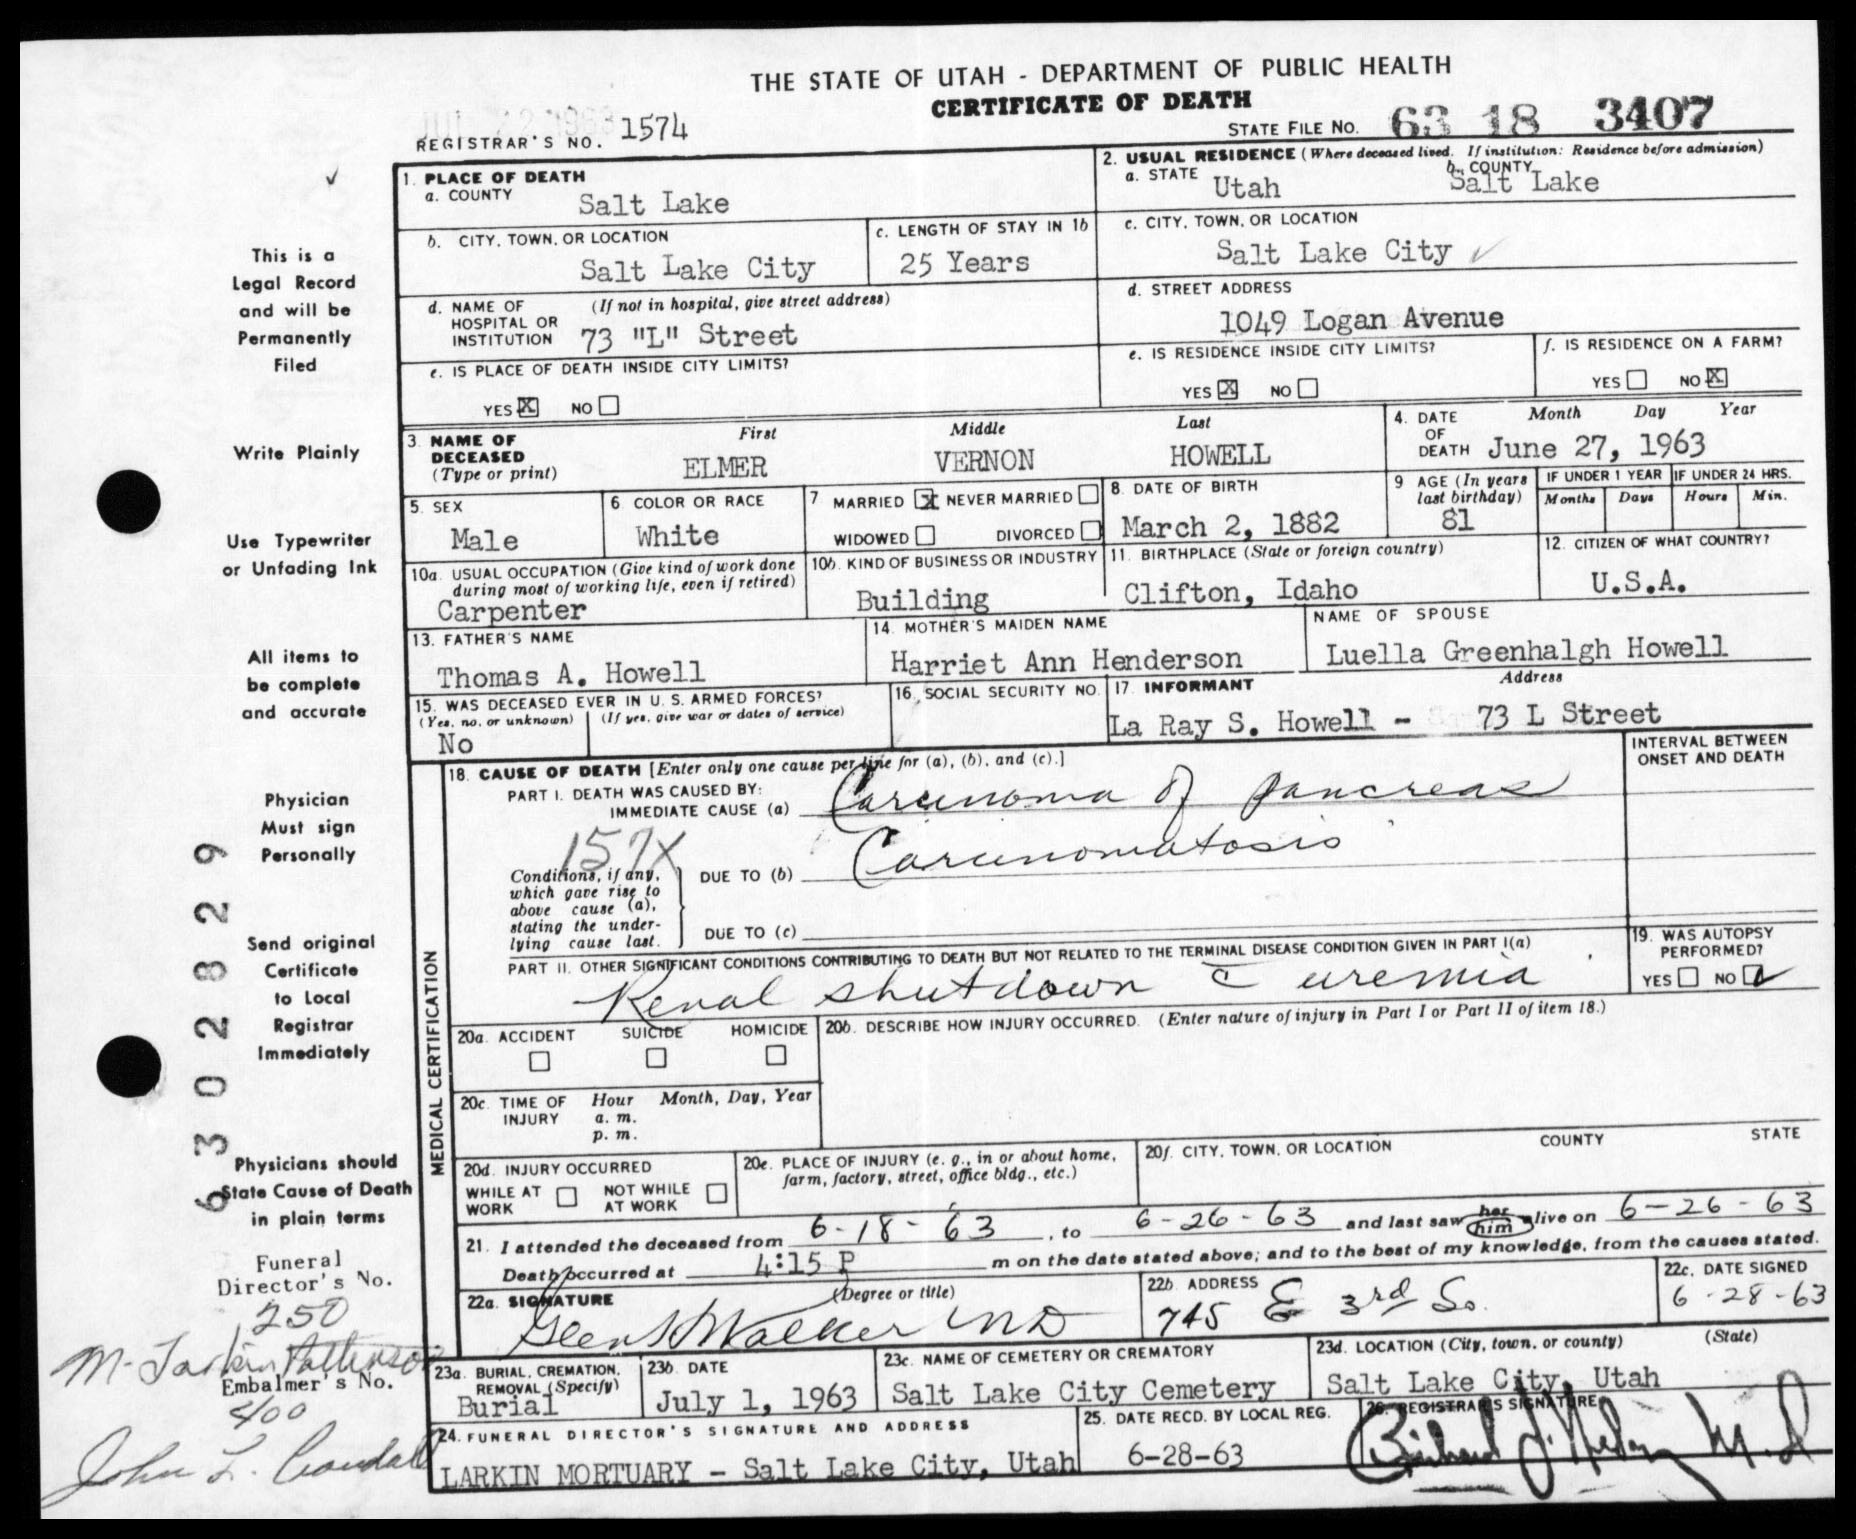 THE STATE OF UTAH - DEPARTMENT OF PUBLIC HEALTH
CERTIFICATE OF DEATH
REGISTRAR'S NO. 1574
STATE FILE NO. 63 18 3407
1. PLACE OF DEATH
a. COUNTY Salt Lake
b. CITY, TOWN, OR LOCATION
Salt Lake City
c. LENGTH OF STAY IN 1b
25 Years
d. NAME OF HOSPITAL OR INSTITUTION (If not in hospital, give street address)
73 "L" Street
e. IS PLACE OF DEATH INSIDE CITY LIMITS?
YES X NO
2. USUAL RESIDENCE (Where deceased lived. If institution: Residence before admission)
a. STATE Utah
b. COUNTY Salt Lake
c. CITY, TOWN, OR LOCATION
Salt Lake City
d. STREET ADDRESS
1049 Logan Avenue
e. IS RESIDENCE INSIDE CITY LIMITS?
YES X NO
f. IS RESIDENCE ON A FARM?
YES NO X
3. NAME OF DECEASED (Type or print)
First Middle Last
ELMER VERNON HOWELL
4. DATE OF DEATH Month Day Year
June 27, 1963
5. SEX
Male
6 COLOR OR RACE
White
7 MARRIED X NEVER MARRIED
WIDOWED DIVORCED
8. DATE OF BIRTH
March 2, 1882
9 AGE (In years last birthday)
81
IF UNDER 1 YEAR
Months Days
IF UNDER 24 HRS.
Hours Min.
10a. USUAL OCCUPATION (Give kind of work done during most of working life, even if retired)
Carpenter
10b. KIND OF BUSINESS OR INDUSTRY
Building
11. BIRTHPLACE (State or foreign country)
Clifton, Idaho
12. CITIZEN OF WHAT COUNTRY?
U.S.A.
13. FATHER'S NAME
Thomas A. Howell
14. MOTHER'S MAIDEN NAME
Harriet Ann Henderson
NAME OF SPOUSE
Luella Greenhalgh Howell
15. WAS DECEASED EVER IN U. S. ARMED FORCES?
(Yes, no, or unknown) (If yes, give war or dates of service)
No
16. SOCIAL SECURITY NO.
17. INFORMANT Address
La Ray S. Howell - 73 L Street
MEDICAL CERTIFICATION
18. CAUSE OF DEATH [Enter only one cause per line for (a), (b), and (c).]
INTERVAL BETWEEN ONSET AND DEATH
PART I. DEATH WAS CAUSED BY:
IMMEDIATE CAUSE (a) Carcinoma of pancreas
157X
Conditions, if any, which gave rise to above cause (a), stating the underlying cause last.
DUE TO (b) Carcinomatosis
DUE TO (c)
PART II. OTHER SIGNIFICANT CONDITIONS CONTRIBUTING TO DEATH BUT NOT RELATED TO THE TERMINAL DISEASE CONDITION GIVEN IN PART I(a)
Renal shutdown c̄ uremia
19. WAS AUTOPSY PERFORMED?
YES NO ✓
20a. ACCIDENT SUICIDE HOMICIDE
20b. DESCRIBE HOW INJURY OCCURRED. (Enter nature of injury in Part I or Part II of item 18.)
20c. TIME OF INJURY Hour Month, Day, Year
a. m.
p. m.
20d. INJURY OCCURRED
WHILE AT WORK NOT WHILE AT WORK
20e. PLACE OF INJURY (e. g., in or about home, farm, factory, street, office bldg., etc.)
20f. CITY, TOWN, OR LOCATION COUNTY STATE
21. I attended the deceased from 6-18-63, to 6-26-63 and last saw her him alive on 6-26-63
Death occurred at 4:15 P m on the date stated above; and to the best of my knowledge, from the causes stated.
22a. SIGNATURE (Degree or title)
Walker MD
22b. ADDRESS
745 E 3rd So.
22c. DATE SIGNED
6-28-63
23a. BURIAL, CREMATION, REMOVAL (Specify)
Burial
23b. DATE
July 1, 1963
23c. NAME OF CEMETERY OR CREMATORY
Salt Lake City Cemetery
23d. LOCATION (City, town, or county) (State)
Salt Lake City, Utah
24. FUNERAL DIRECTOR'S SIGNATURE AND ADDRESS
LARKIN MORTUARY - Salt Lake City, Utah
25. DATE RECD. BY LOCAL REG.
6-28-63
26. REGISTRAR'S SIGNATURE
This is a
Legal Record
and will be
Permanently
Filed
Write Plainly
Use Typewriter
or Unfading Ink
All items to
be complete
and accurate
Physician
Must sign
Personally
Send original
Certificate
to Local
Registrar
Immediately
Physicians should
State Cause of Death
in plain terms
6302829
Funeral
Director's No.
250
Embalmer's No.
400